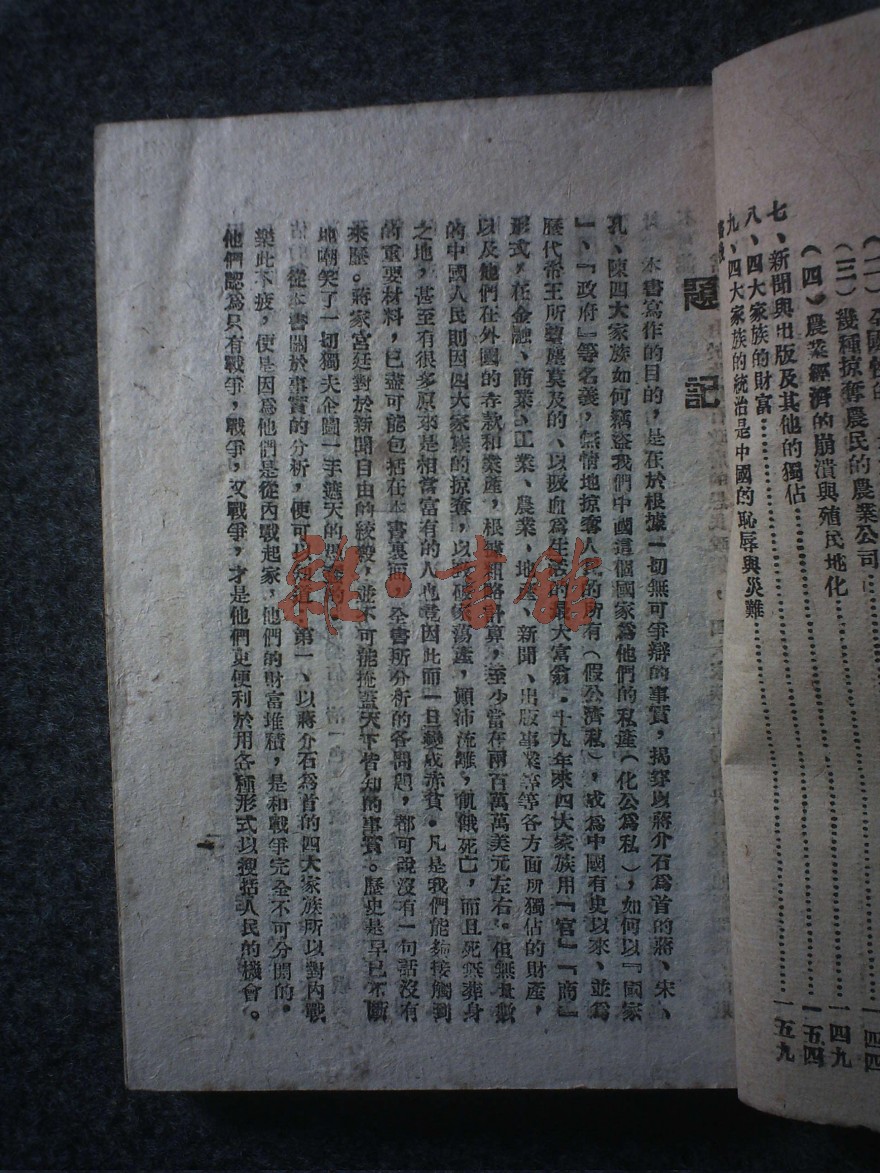 全國性的
（三）幾種掠奪農民的農業公司
（四）農業經濟的崩潰與殖民地化……一四四
七、新聞與出版及其他的獨佔……一四九
八、四大家族的財富……一五四
九、四大家族的統治是中國的恥辱與災難……一五九
題記
本書寫作的目的，是在於根據一切無可爭辯的事實，揭穿以蔣介石爲首的蔣、宋、
孔、陳四大家族如何竊盜我們中國這個國家爲他們的私產（化公爲私），如何以『國家
』、『政府』等名義，無情地掠奪人民的所有（假公濟私），成爲中國有史以來、並爲
歷代帝王所望塵莫及的、以吸血爲生活的最大富翁。十九年來四大家族用『官』『商』
形式，在金融、商業、工業、農業、地產、新聞、出版事業等等各方面所獨佔的財產，
以及他們在外國的存款和業產，根據粗略計算，至少當在兩百萬萬美元左右。但無量數
的中國人民則因四大家族的掠奪，以致破家蕩產，顛沛流離，飢餓死亡，而且死無葬身
之地，甚至有很多原來是相當富有的人也竟因此而一旦變成赤貧。凡是我們能夠接觸到
的重要材料，已盡可能包括在本書裏面。全書所分析的各問題，都可說沒有一句話沒有
來歷。蔣家宮廷對於新聞自由的絞殺，並不可能掩蓋天下皆知的事實。歷史是早已不斷
地嘲笑了一切獨夫企圖一手遮天的
從本書關於事實的分析，便可以知道：第一、以蔣介石爲首的四大家族所以對內戰
樂此不疲，便是因爲他們是從內戰起家，他們的財富堆積，是和戰爭完全不可分開的，
他們認爲只有戰爭，戰爭，又戰爭，才是他們更便利於用各種形式以搜括人民的機會。
一
雜·書館